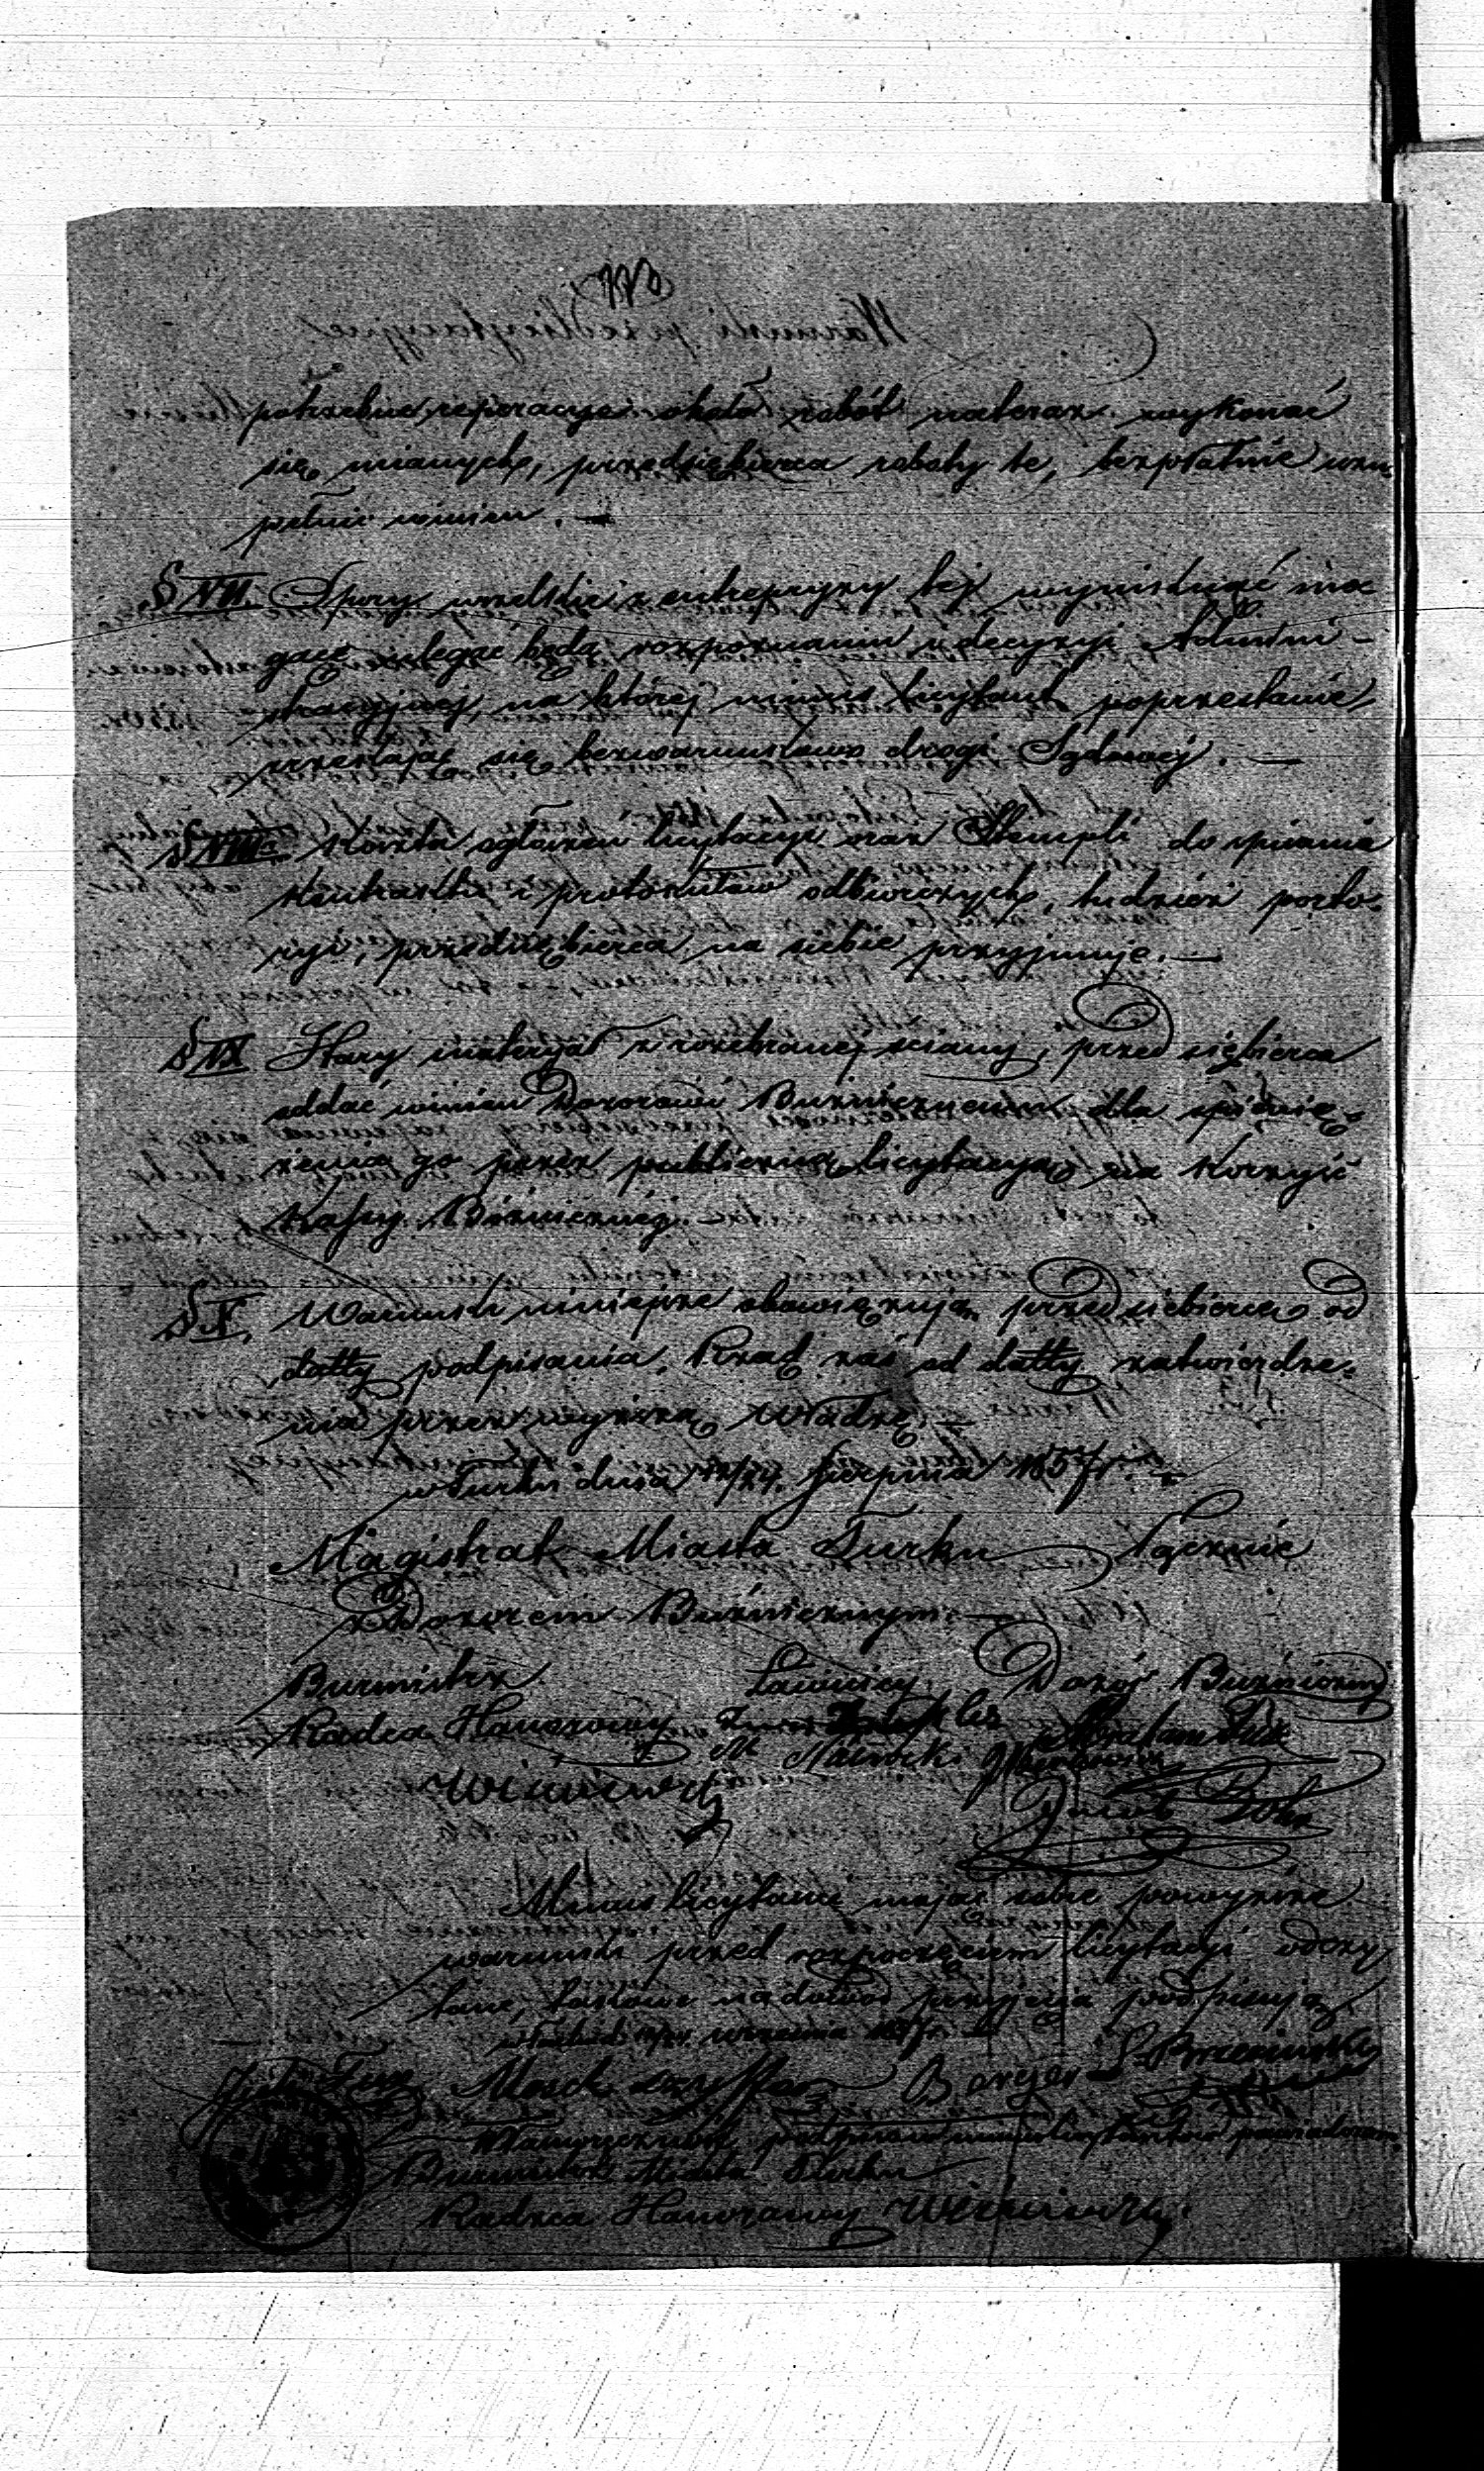 potrzebne reperacye około robót nateraz wykonać
się mianych, przedsiębierca roboty te, bezpłatnie uzu
pełnić winien. —
§ VII. Spory wszelkie z entrepryzy tej wyniknąć mo
gące ulegać będą rozpoznaniu i decyzyi Admini-
stracyjnej, na której minus licytant poprzestanie,
zrzekając się bezwarunkowo drogi Sądowej. —
§ VIII. Koszta ogłoszeń licytacyi oraz Stempli do spisania
kontraktu i protokułów odbiorczych, tudzież porto-
ryi, przedsiębierca na siebie przyjmuje. —
§ IX Stary materyał z rozebranej sciany, przedsiębierca
oddać winien Dozorowi Bużniczemu dla spienię-
żenia go przez publiczną licytacyą na korzyść
Kassy Bóżniczej. —
§ X. Warunki niniejsze obowiązują przedsiebiercę od
datty podpisania, Rząd zaś od datty zatwierdze-
nia przez wyższą Władzę. —
w Turku dnia 12/24 Sierpnia 1857 r. —
Magistrat Miasta Turku Łącznie
z Dozorem Bużnicznym. —
Burmistrz Ławnicy Dozór Bużniczny
Radca Honorowy
M
Jacob
Minus licytanci mając sobie powyższe
warunki przed rozpoczęciem licytacyi odczy
tane, takowe na dowód przyjęcia podpisują
września
Fux Mosek Berger
podpisów minus licytantów poświadczam
Burmistrz Miasta Turku
Radzca Honorowy